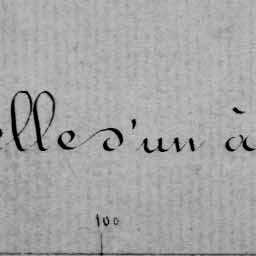 elle d'un à
100